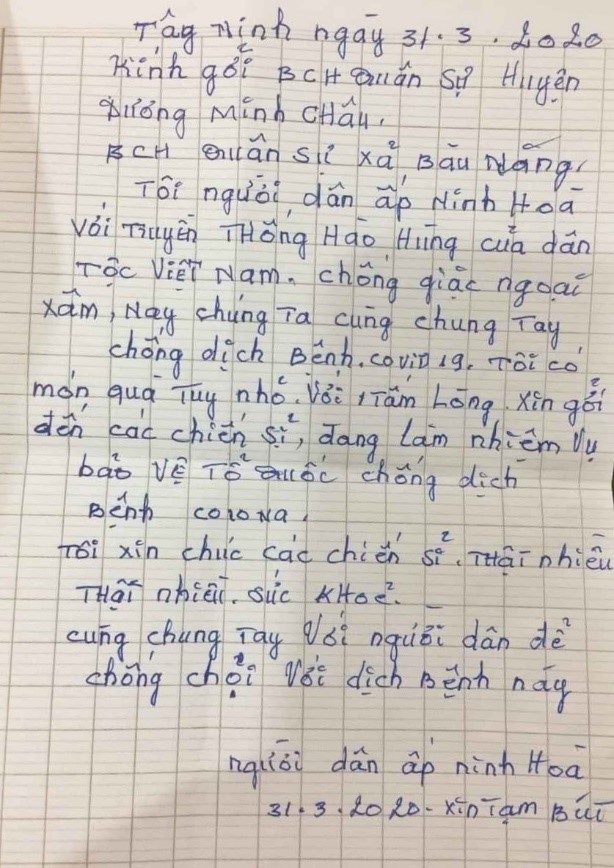 Tây Ninh ngày 31.3.2020
Kính gởi BCH Quân Sự Huyện
Dương Minh Châu.
BCH Quân sự xã, Bàu Năng,
Tôi người dân ấp Ninh Hoà
Với Truyền Thống Hào Hùng của dân
Tộc Việt Nam. chống giặc ngoại
xâm, Nay chúng Ta cùng chung Tay
chống dịch Bệnh. covid 19. Tôi có
món quà Tuy nhỏ. Với 1 Tấm Lòng. xin gởi
đến các chiến sĩ, đang làm nhiệm vụ
bảo vệ Tổ Quốc chống dịch
Bệnh corona.
Tôi xin chúc các chiến sĩ. Thật nhiều
Thật nhiều. sức khoẻ.
cùng chung Tay Với người dân để
chống chọi Với dịch Bệnh này
người dân ấp ninh Hoà
31.3.2020. xin Tạm Bút